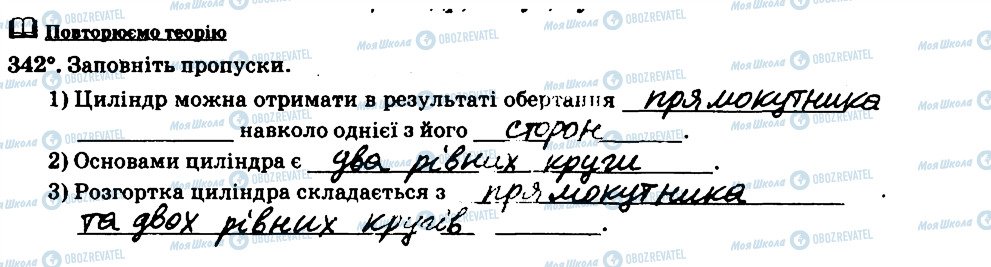 Повторюємо теорію
342°. Заповніть пропуски.
1) Циліндр можна отримати в результаті обертання прямокутника
навколо однієї з його сторон.
2) Основами циліндра є два рівних круги.
3) Розгортка циліндра складається з прямокутника
та двох рівних кругів.